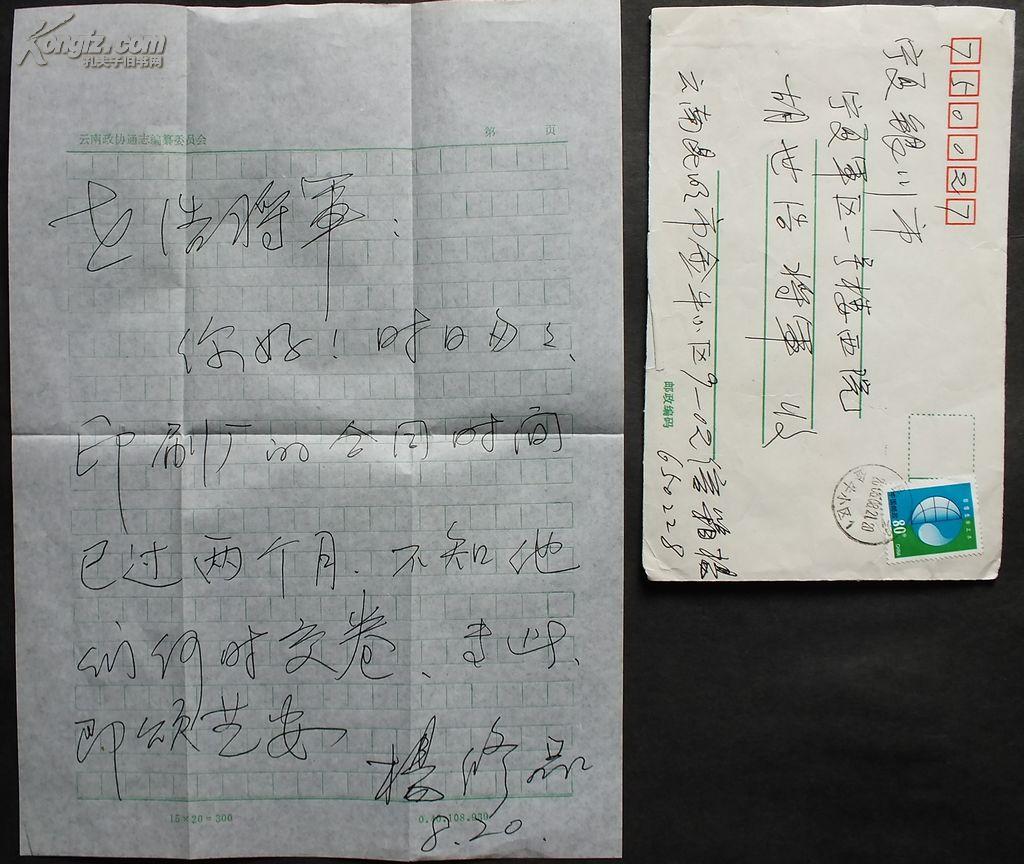 Kongfz.com
孔夫子旧书网
云南政协通志编纂委员会
第 页
世浩将軍：
你好！时日匆匆、
印刷厂的合同时间
已过两个月、不知他
们何时交卷、专此、
即颂艺安
楊修品
8.20.
15×20=300
750027
宁夏銀川市
宁夏軍区一号楼西院
胡世浩将軍收
云南昆明市金牛小区9—02信箱楊
邮政编码
650228
80